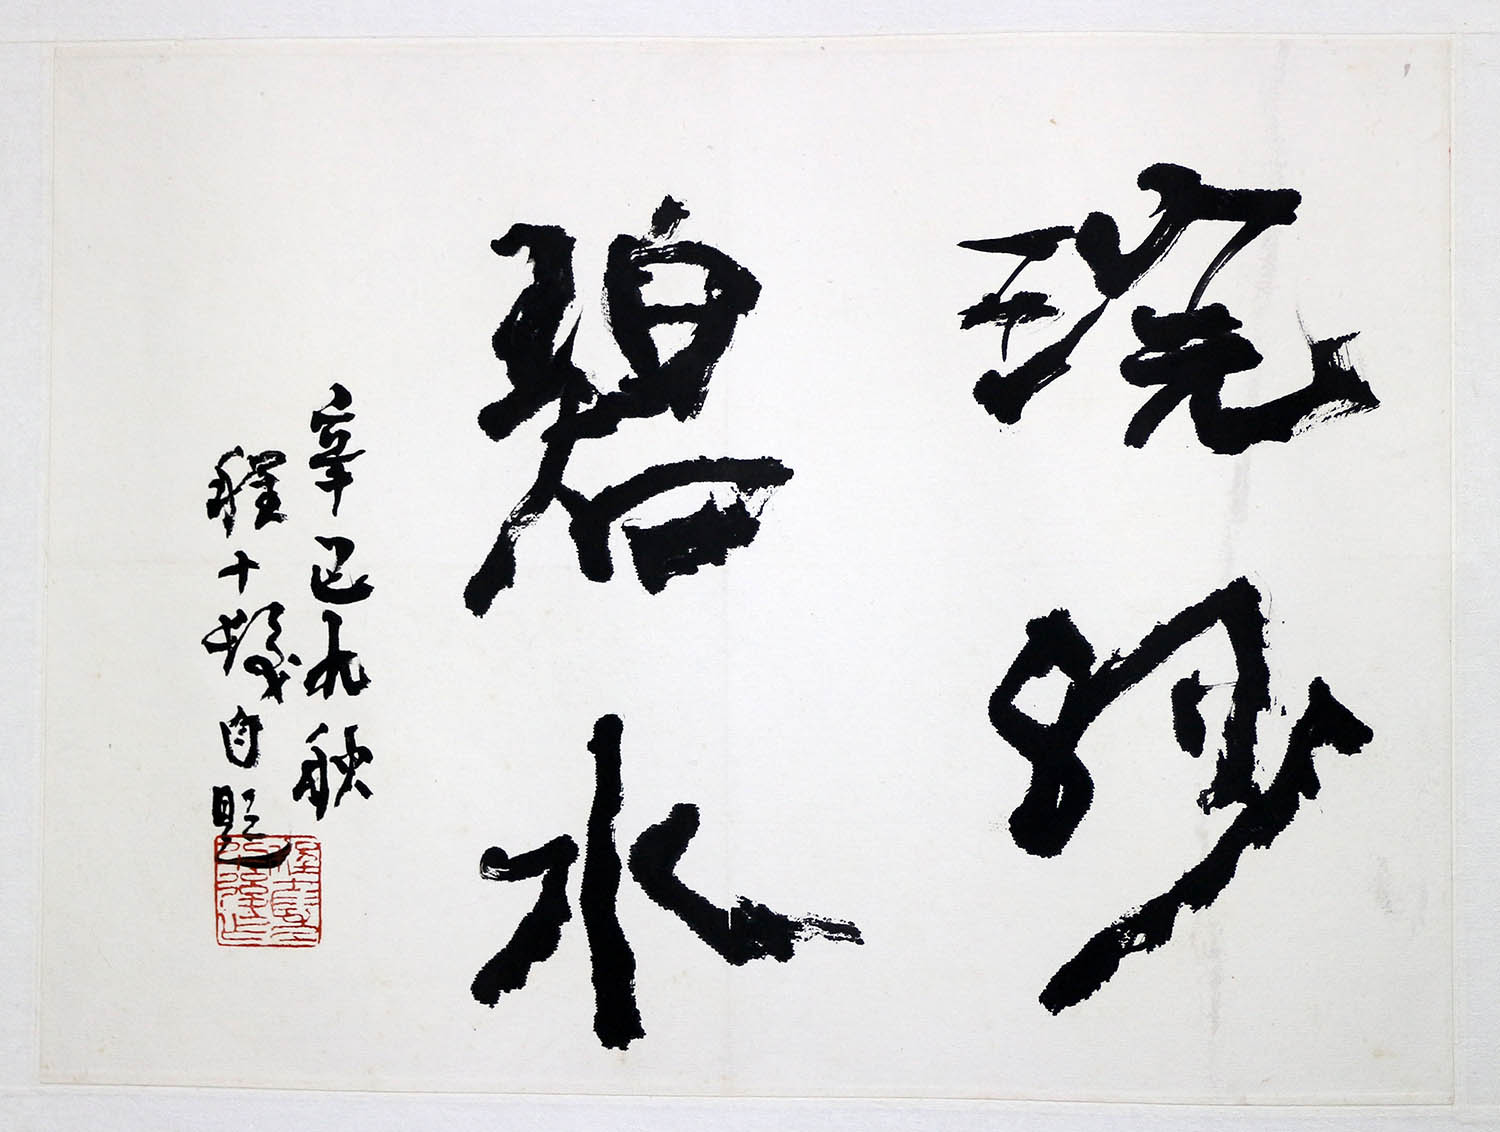 浣紗
碧水
辛巳九秋
程十髮自題